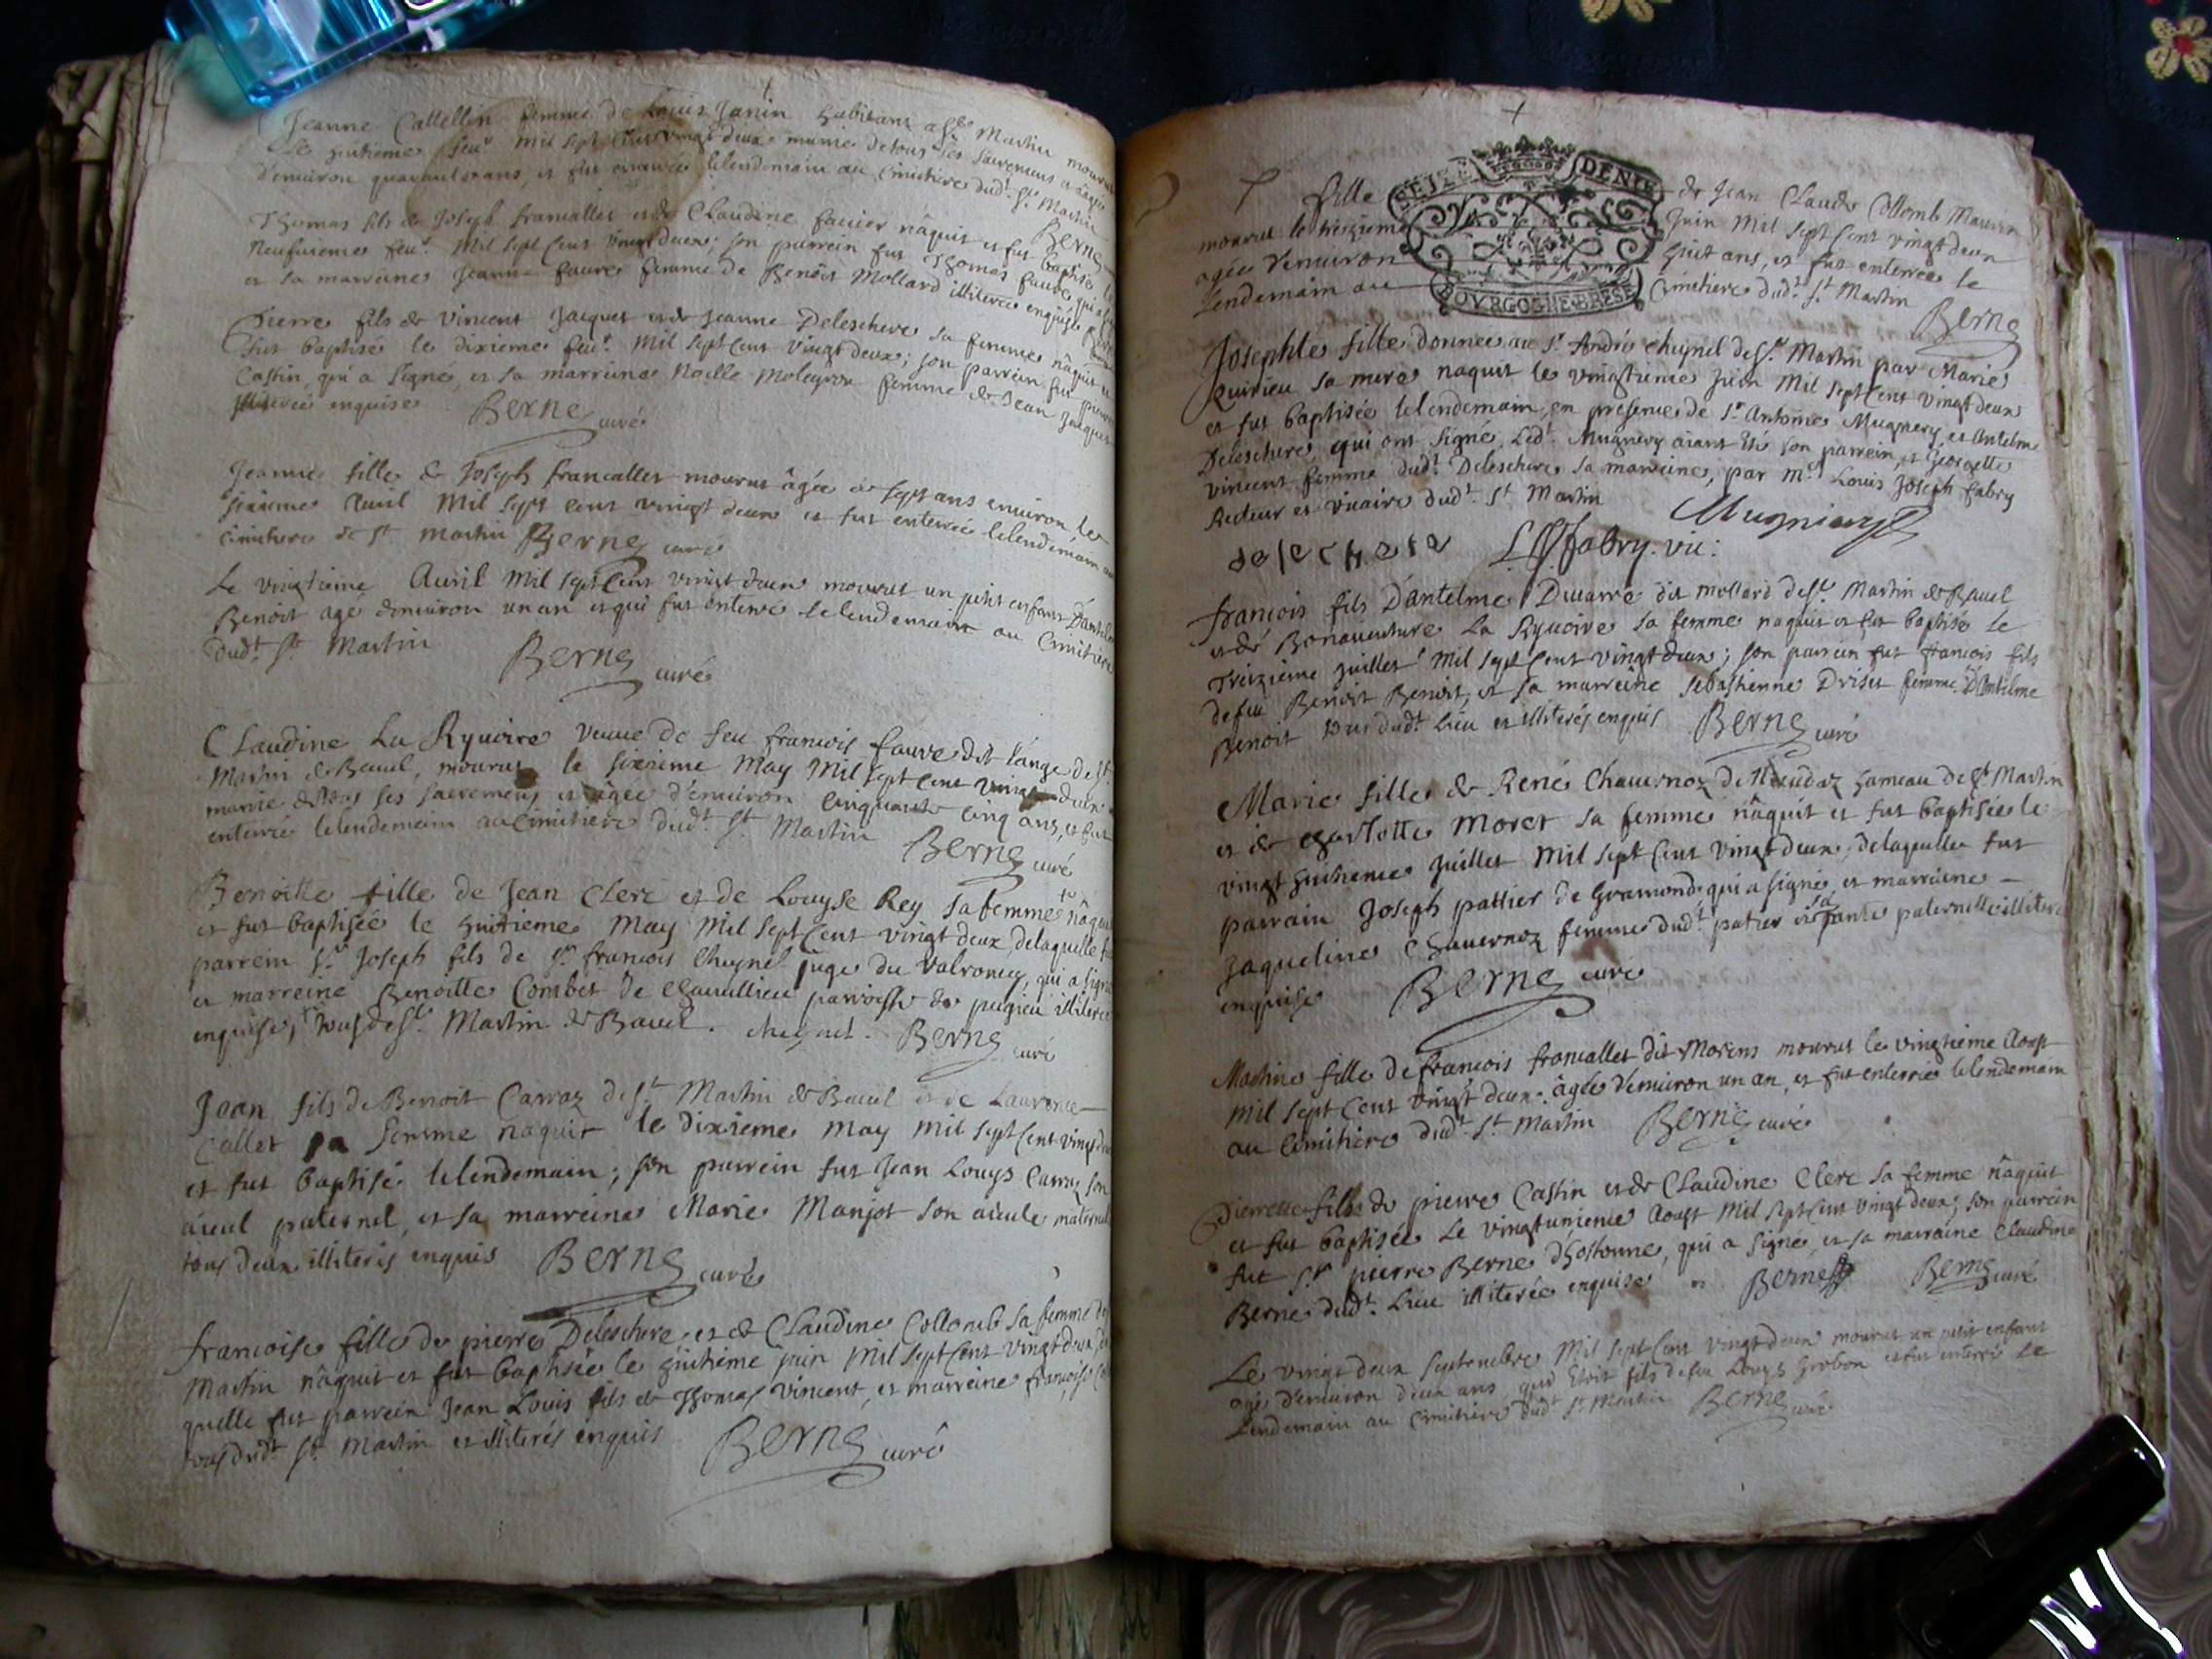 Jeanne Cattellin femme de Louis Janin habitant a St Martin mourut
le huitieme feur. mil sept Cent vingt deux munie de tous ses sacremens et âgée
d'enuiron quarante ans, et fut enterrée le lendemain au Cimitiere dudt. St Martin
Berne
Thomas fils de Joseph francallet et de Claudine fauier nâquit et fut baptisé le
neufuieme feur. mil sept Cent vingt deux; son parrein fut Thomas faure qui a
et sa marreine Jeanne faure femme de Benoit Mollard illiterée enquise
Pierre fils de vincent Jacquet et de Jeanne Deleschere sa femme nâquit et
fut baptisé le dixieme feur. mil sept Cent vingt deux; son parrein fut pierre
Castin, qui a signé, et sa marreine Noelle Moleyron femme de Jean Jacquet
illiterée enquise Berne curé
Jeanne fille de Joseph francallet mourut âgée de sept ans enuiron le
sixieme Auril mil sept cent vingt deux et fut enterrée le lendemain au
cimitiere de St martin Berne curé
Le vingtieme Auril mil sept Cent vingt deux mourut un petit enfant D'antelme
Benoit agé denuiron un an et qui fut enterré le lendemain au Cimitiere
dudt. St Martin Berne curé
Claudine La Ryuoire veuue de feu francois faure dit l'ange de St.
Martin de Bauel, mourut le sixieme May mil sept Cent vingt deux
munie de tous ses sacremens et âgée d'enuiron Cinquante cinq ans, et fut
enterrée le lendemain au Cimitiere dudt. St. Martin Berne curé
Benoitte fille de Jean Clerc et de Louyse Rey sa femme + nâquit
et fut baptisée le huitieme May mil sept Cent vingt deux, delaquelle fut
parrein Sr. Joseph fils de Sr. francois Cheynel juge du Valromey, qui a signé
et marreine Benoitte Combet de Chauillieu parroisse de pugieu illiterée
enquise, + tous de St. Martin de Bauel. cheynel. Berne curé
Jean fils de Benoit Carraz de St. Martin de Bauel et de Laurence
Callet sa femme naquit le dixieme May mil sept Cent vingt deux
et fut baptisé le lendemain; son parrein fut Jean Louys Carraz son
aieul paternel, et sa marreine Marie Manjot son aieule maternelle
tous deux illiterés enquis Berne curé
francoise fille de pierre Deleschere et de Claudine Collomb sa femme de St
Martin nâquit et fut baptisée le huitieme juin mil sept Cent vingt deux, de
quelle fut parrein Jean Louis fils de Thomas vincent, et marreine francoise
tous dudt. St. Martin et illiterés enquis Berne curé
+
SEIZE DENIE
BOVRGOGNE BRESE
fille de Jean Claude Collomb Maurin
mourut le treizieme Juin mil sept Cent vingt deux
agée d'enuiron huit ans, et fut enterrée le
lendemain au Cimitiere dudt. St Martin
Berne
Josephte fille donnee au Sr. André cheynel de St. Martin par Marie
Quirieu sa mere naquit le vingtieme juin mil sept Cent vingt deux
et fut baptisée le lendemain, en presence de Sr. Antoine Mugniery, et Antelme
Deleschere, qui ont signé, Ledt. Mugniery aiant été son parrein, et Georgette
vincent femme dudt. Deleschere sa marreine, par Mre. Louis Joseph fabry
Recteur et vicaire dudt. St Martin Mugniery
delechere LJfabry. vic:
francois fils D'antelme Ducarre dit mollard de St. Martin de Bauel
et de Bonauenture La Ryuoire sa femme naquit et fut baptisé le
treizieme juillet mil sept Cent vingt deux; son parrein fut francois fils
de feu Benoit Benoit, et sa marreine Sebastienne Driset femme D'Antelme
Benoit tous dudt. Lieu et illiterés enquis Berne curé
Marie fille de René Chauernoz de hameau de St Martin
et de charlotte Moret sa femme nâquit et fut baptisée le
vingt huitieme juillet mil sept Cent vingt deux, delaquelle fut
parrain Joseph pattier de Gramond qui a signé, et marraine
Jaqueline Chauernoz femme dudt. patier et sa tante paternelle illiterée
enquise Berne curé
Martine fille de francois francallet dit Morens mourut le vingtieme Aoust
mil sept Cent vingt deux. âgée d'enuiron un an, et fut enterrée le lendemain
au Cimitiere dudt. St Martin Berne curé
Pierrette fille de pierre Castin et de Claudine Clerc sa femme nâquit
et fut baptisée le vingtunieme Aoust mil sept Cent vingt deux; son parrein
fut Sr. pierre Berne d'hostonne, qui a signé, et sa marraine Claudine
Berne dudt. Lieu illiterée enquise Berne Berne curé
Le vingt deux septembre mil sept Cent vingt deux mourut un petit enfant
agé d'enuiron deux ans, qui étoit fils de feu Louys Grobon et fut enterré le
lendemain au Cimitiere dudt St Martin Berne curé